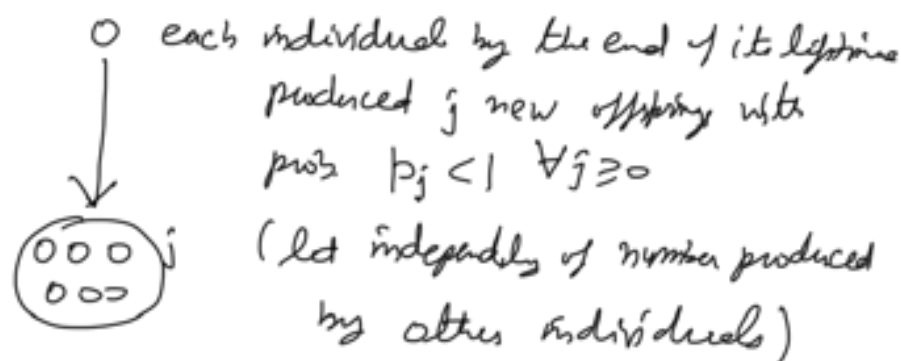 each individual by the end of its lifetime
produced j new offsprings with
prob p_j < 1 ∀ j ≥ 0
j (let independly of number produced
by other individuals)